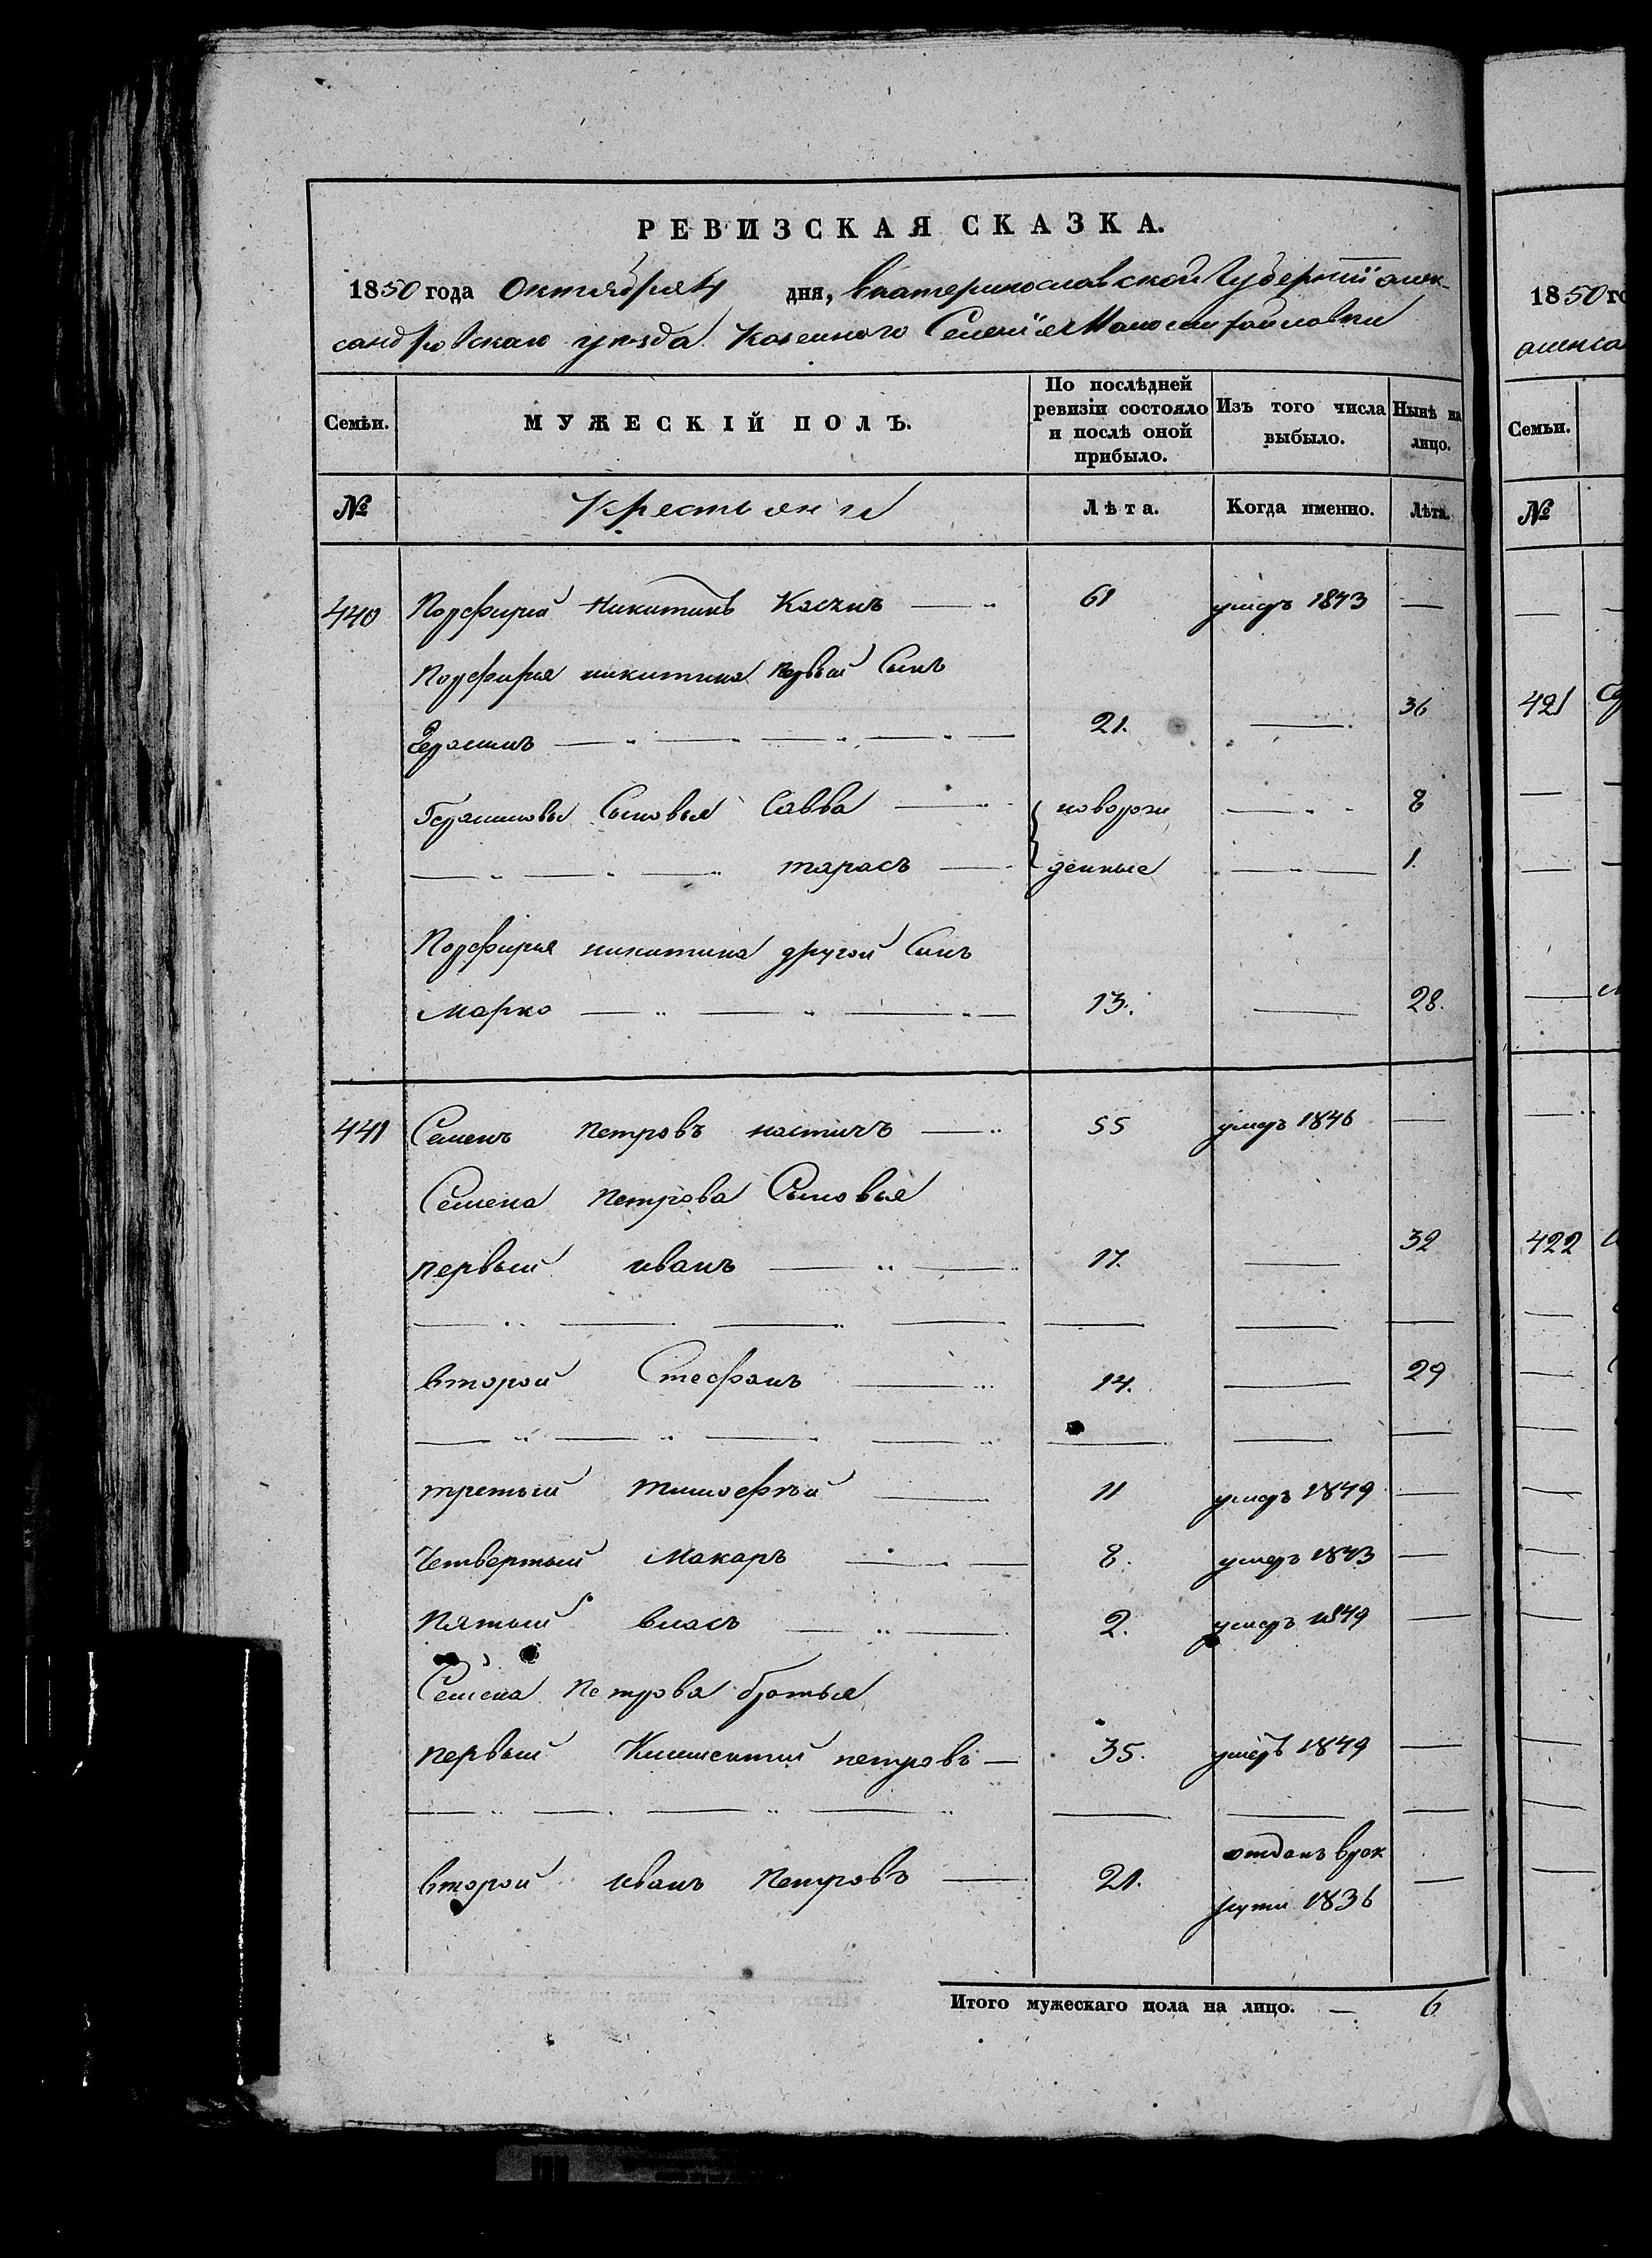 РЕВИЗСКАЯ СКАЗКА.
1850 года Октября 4 дня, Екатеринославской Губерніи алек-
сандровскаго уезда Казенного Селенія
Семьи.
МУЖЕСКІЙ ПОЛЪ.
По послѣдней ревизіи состояло и послѣ оной прибыло.
Изъ того числа выбыло.
Нынѣ на лицо.
№
Крестьяни
Лѣта.
Когда именно.
Лѣта.
440 Порфирий Никитинъ 61 умеръ 1843 —
Порфирия никитина первый Сынъ
Герасимъ 21. — 36
Герасимовы Сыновья Савва новорож — 8
тарасъ денные — 1.
Порфирия никитина другой Сынъ
Марко 13. — 28.
441 Семенъ петровъ 55 умеръ 1846 —
Семена петрова Сыновья
первый иванъ 17. — 32
второй Стефанъ 14. — 29
третый тимофѣй 11 умеръ 1849 —
Четвертый Макаръ 8. умеръ 1843 —
Пятый власъ 2. умеръ 1849 —
Семена Петрова братья
первый петровъ — 35. умеръ 1849 —
второй иванъ Петровъ — 21. отданъ врек
рути 1836 —
Итого мужескаго пола на лицо. — 6
1850 го
алекса
Семьи.
№
421
422